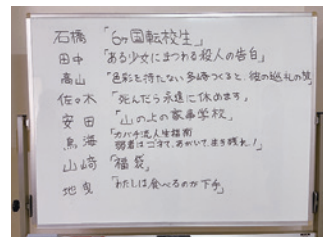 石橋 「6ヶ国転校生」
田中 「ある少女にまつわる殺人の告白」
高山 「色彩を持たない多崎つくると、彼の巡礼の年」
佐々木 「死んだら永遠に休めます」
安田 「山の上の家事学校」
鳥海 「カバチ流人生指南
弱者はゴネて、あがいて、生き残れ!」
山﨑 「福袋」
地曳 「わたしは食べるのが下手」